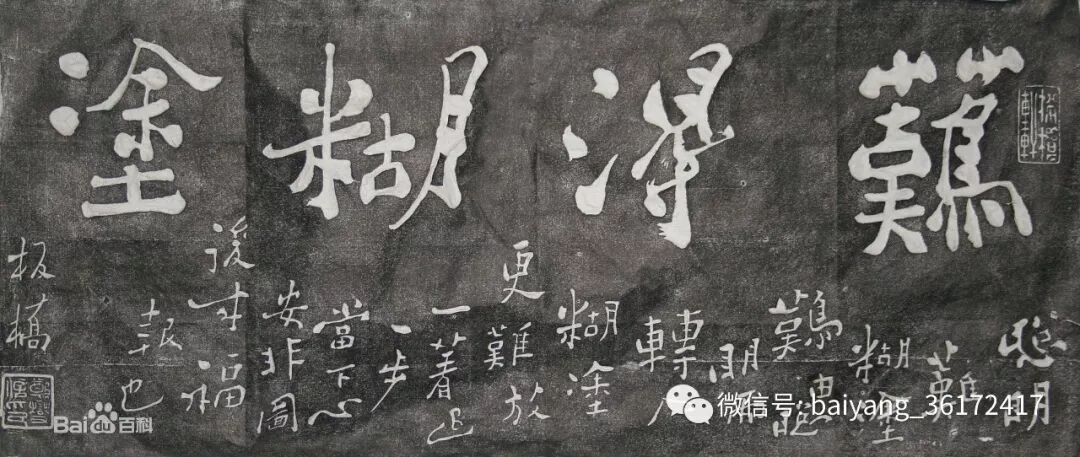 難得糊塗
聰明
難
糊塗
難
明
轉入
糊塗
更
難放
一著退
一步
當下心
安非圖
後来福
報也
板橋
Bai百科
微信号: baiyang_36172417